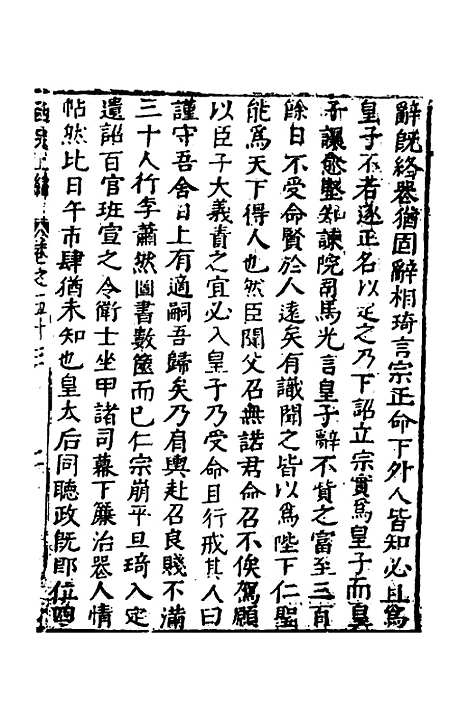 辭旣終喪猶固辭相琦言宗正命下外人皆知必且爲
皇子不若遂正名以定之乃下詔立宗實爲皇子而皇
子讓愈堅知諫院司馬光言皇子辭不貲之富至三百
餘日不受命賢於人遠矣有識聞之皆以爲陛下仁聖
能爲天下得人也然臣聞父召無諾君命召不俟駕願
以臣子大義責之宜必入皇子乃受命且行戒其人曰
謹守吾舍日上有適嗣吾歸矣乃肩輿赴召良賤不滿
三十人行李蕭然圖書數篋而已仁宗崩平旦琦入定
遺詔百官班宣之令衛士坐甲諸司幕下簾治喪人情
帖然比日午市肆猶未知也皇太后同聽政旣卽位
卷之